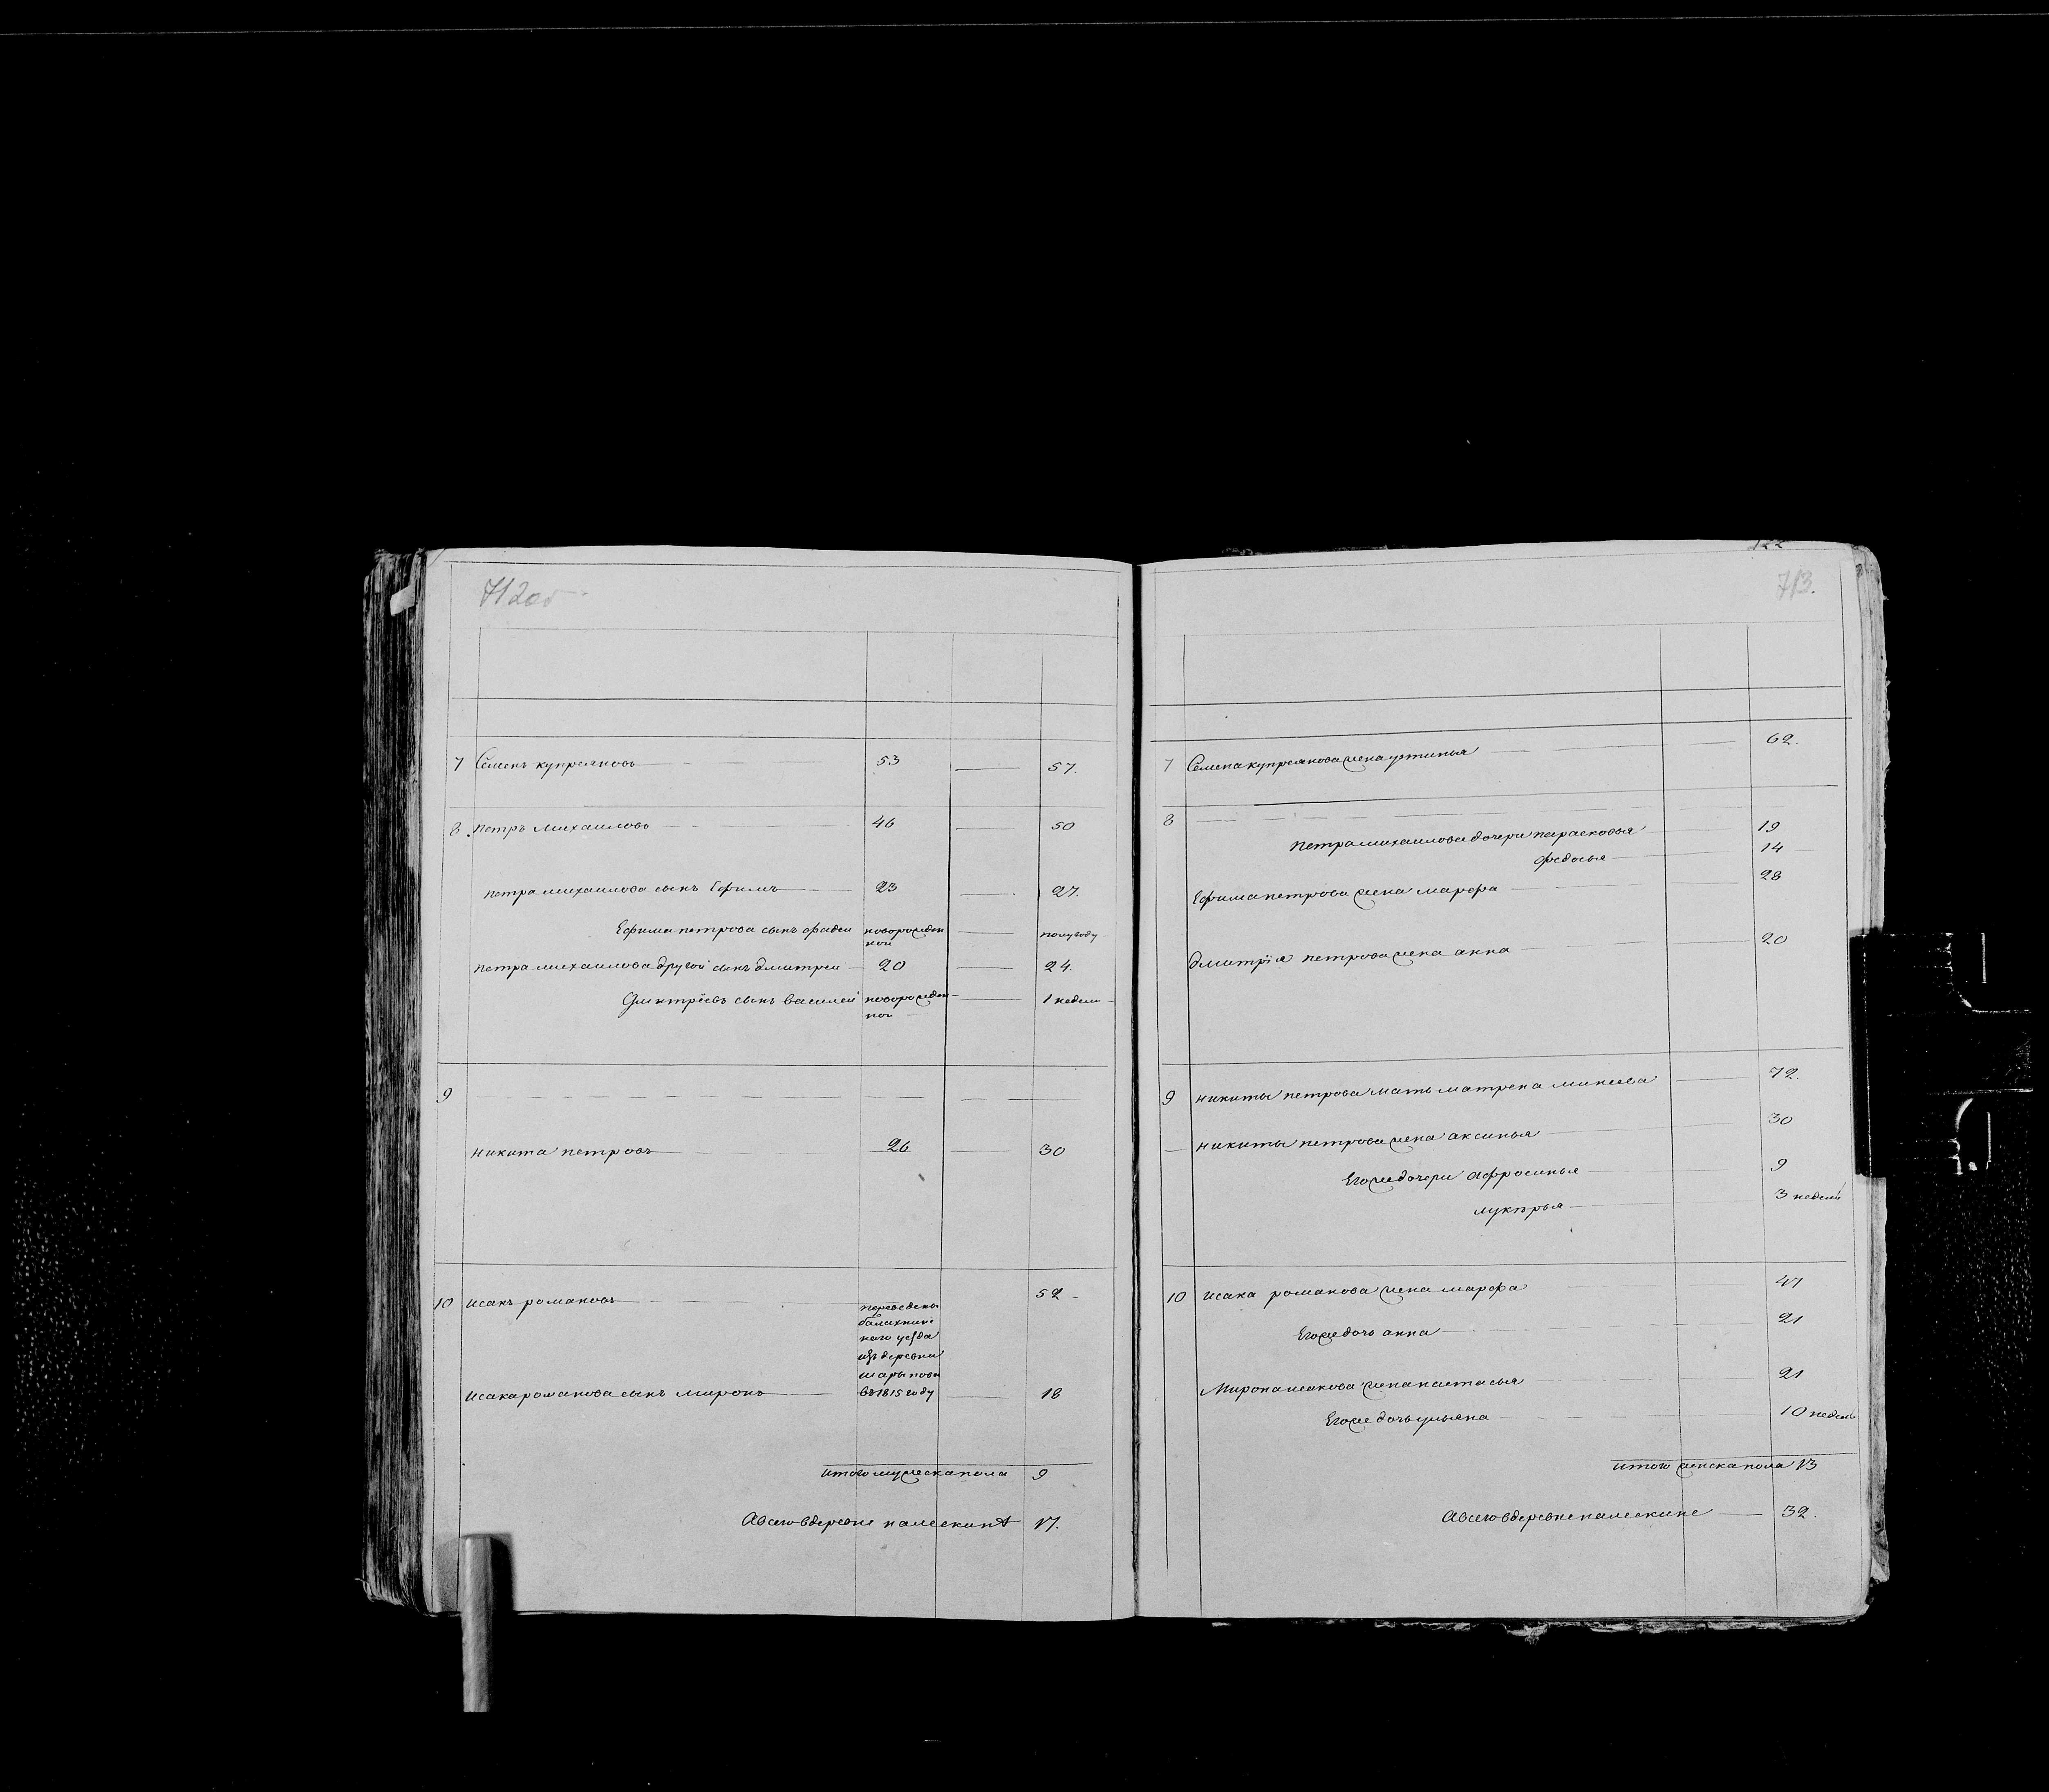 712об
7 Семенъ купреяновъ 53 57.
8. петръ михаиловъ 46 50
петра михаилова сынъ Ефимъ 23 27.
Ефима петрова сынъ фадеи новорожден ной полугоду
петра михаилова другой сынъ дмитреи 20 24.
Дмитрїевъ сынъ василей новорожден ной 1 недели
9
никита петровъ 26 30
10 исакъ романовъ 52
переведены
балахнинс
каго уезда
изъ деревни
шарыпова
исака романова сынъ миронъ въ 1815 году 18
итого мужеска пола 9
А всего в деревне 17.
713.
7 Семена купреянова жена устинья 62.
8
петра михаилова дочери парасковья 19
федосья 14
Ефима петрова жена марфа 28
дмитрїя петрова жена анна 20
9 никиты петрова мать матрена минеева 72.
никиты петрова жена аксинья 30
Его же дочери афросинья 9
лукерья 3 недели
10 исака романова жена марфа 47
Его же дочь анна 21
Мирона исакова жена настасья 21
Его же дочь ульяна 10 недель
итого женска пола 13
А всего в деревне 32.